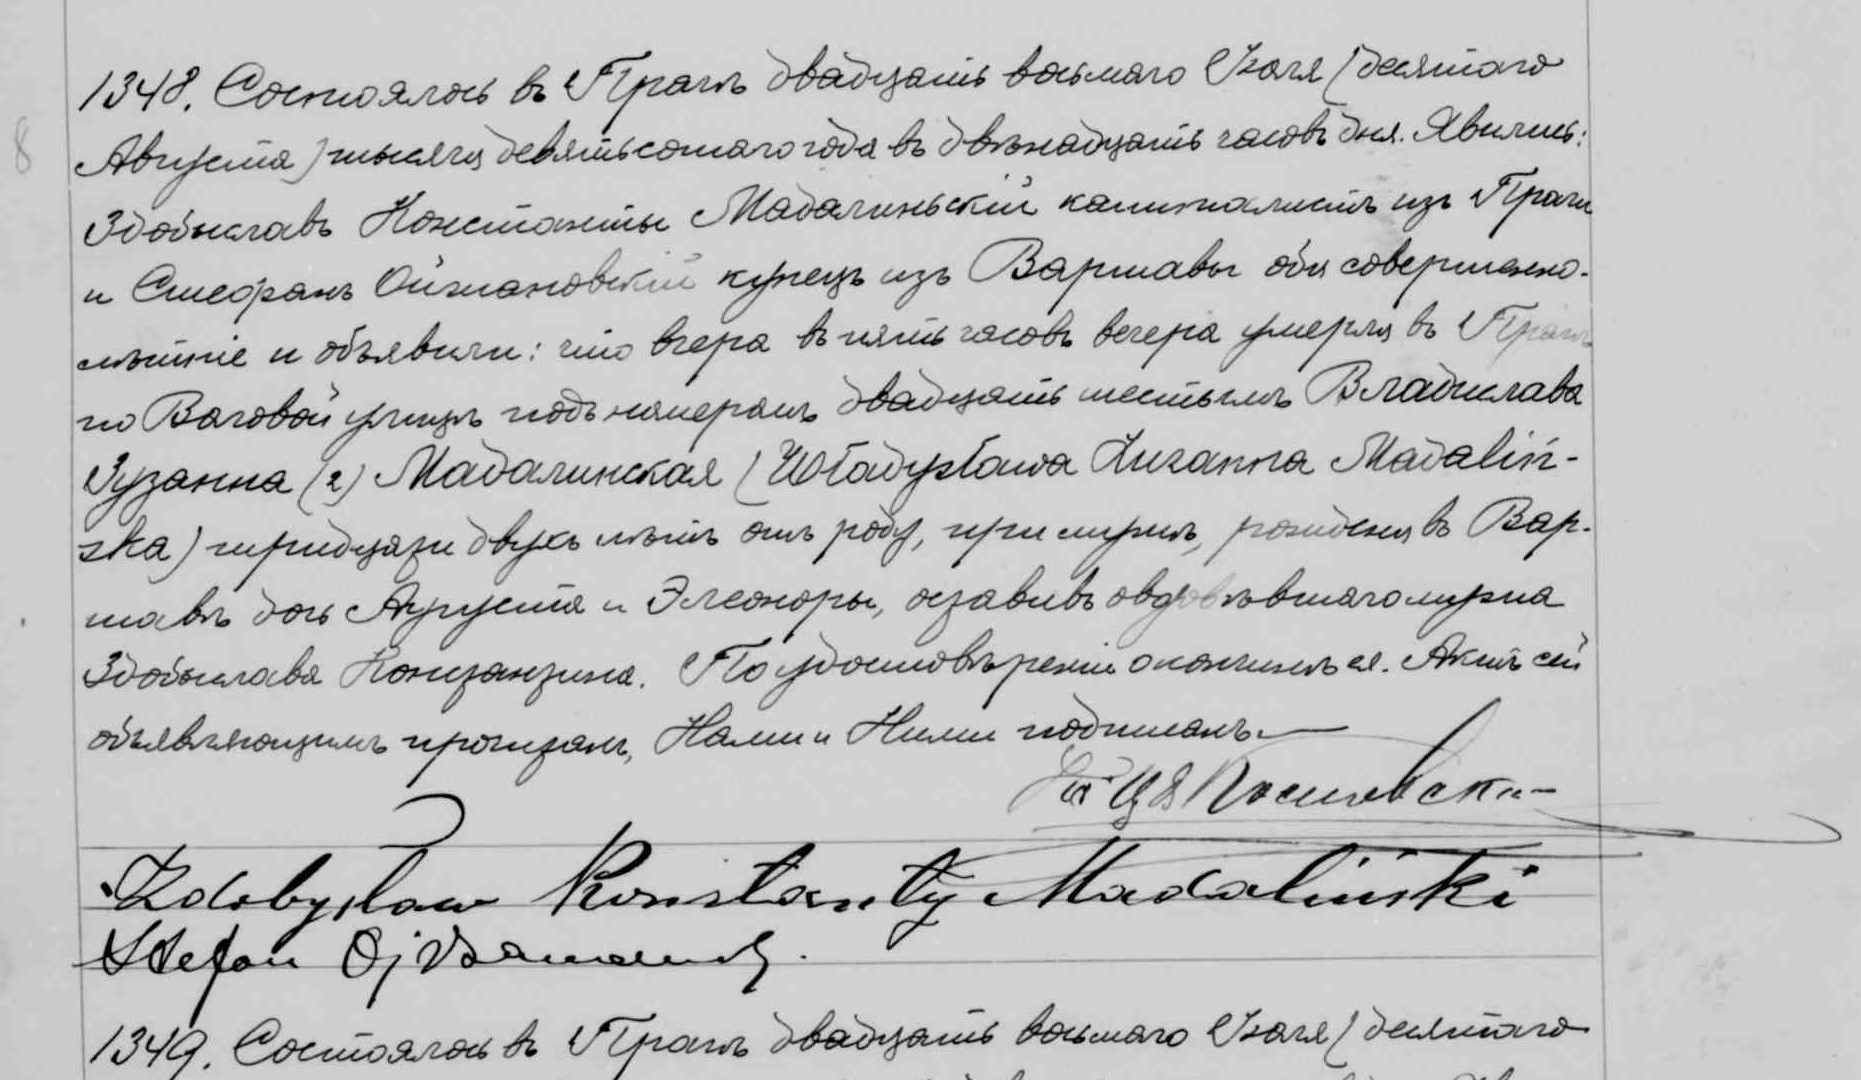 1348. Состоялось въ Прагѣ двадцать восьмаго Іюля (десятаго
Августа) тысяча девятьсотаго года въ двѣнадцать часовъ дня. Явились:
Здобыславъ Константы Мадалиньскій капиталистъ изъ Праги
и Стефанъ купецъ изъ Варшавы оба совершенно-
лѣтніе и объявили: что вчера въ пять часовъ вечера умерла въ Прагѣ
по Варовой улицѣ подъ номеромъ двадцать шестымъ Владислава
Зузанна (2) Мадалинская (Władysława Zuzanna Madaliń-
ska) тридцати двухъ лѣтъ отъ роду, при мужѣ, рожденна въ Вар-
шавѣ дочь Августа и Элеоноры, оставивъ овдовѣвшаго мужа
Здобыслава Константина. По удостовѣреніи о кончинѣ ея. Актъ сей
объявляющимъ прочитанъ, Нами и Ними подписанъ.—
Zdobysław Konstanty Madaliński
Stefan
1349. Состоялось въ Прагѣ двадцать восьмаго Іюля (десятаго